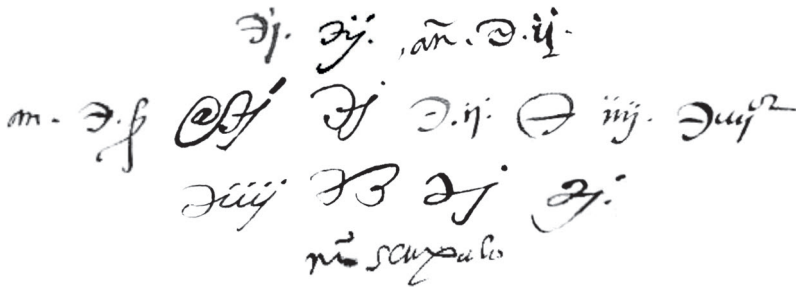 ℈j. ℈ij. , añ. ℈.ij.
m. ℈.ß @℈j ℈j ℈.ij. ℈ iiij. ℈iiij
℈iiij ℈ß ℈j ℈j.
scrupulo